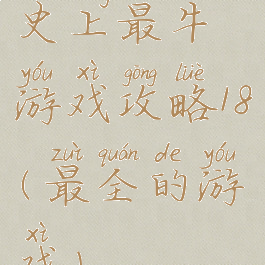 史上最牛
yóu xì gōng lüè
游戏攻略18
zuì quán de yóu
(最全的游
xì
戏)